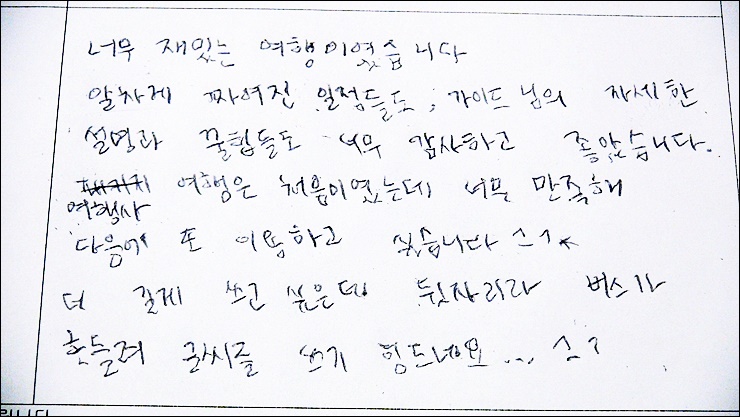 너무 재밌는 여행이였습니다
알차게 짜여진 일정들도, 가이드님의 자세한
설명과 꿀팁들도 너무 감사하고 좋았습니다.
패키지 여행은 처음이였는데 너무 만족해
여행사
다음에 또 이용하고 싶습니다 ㅅㄱ
더 길게 쓰고 싶은데 뒷자리라 버스가
흔들려 글씨를 쓰기 힘드네요... ㅅㄱ